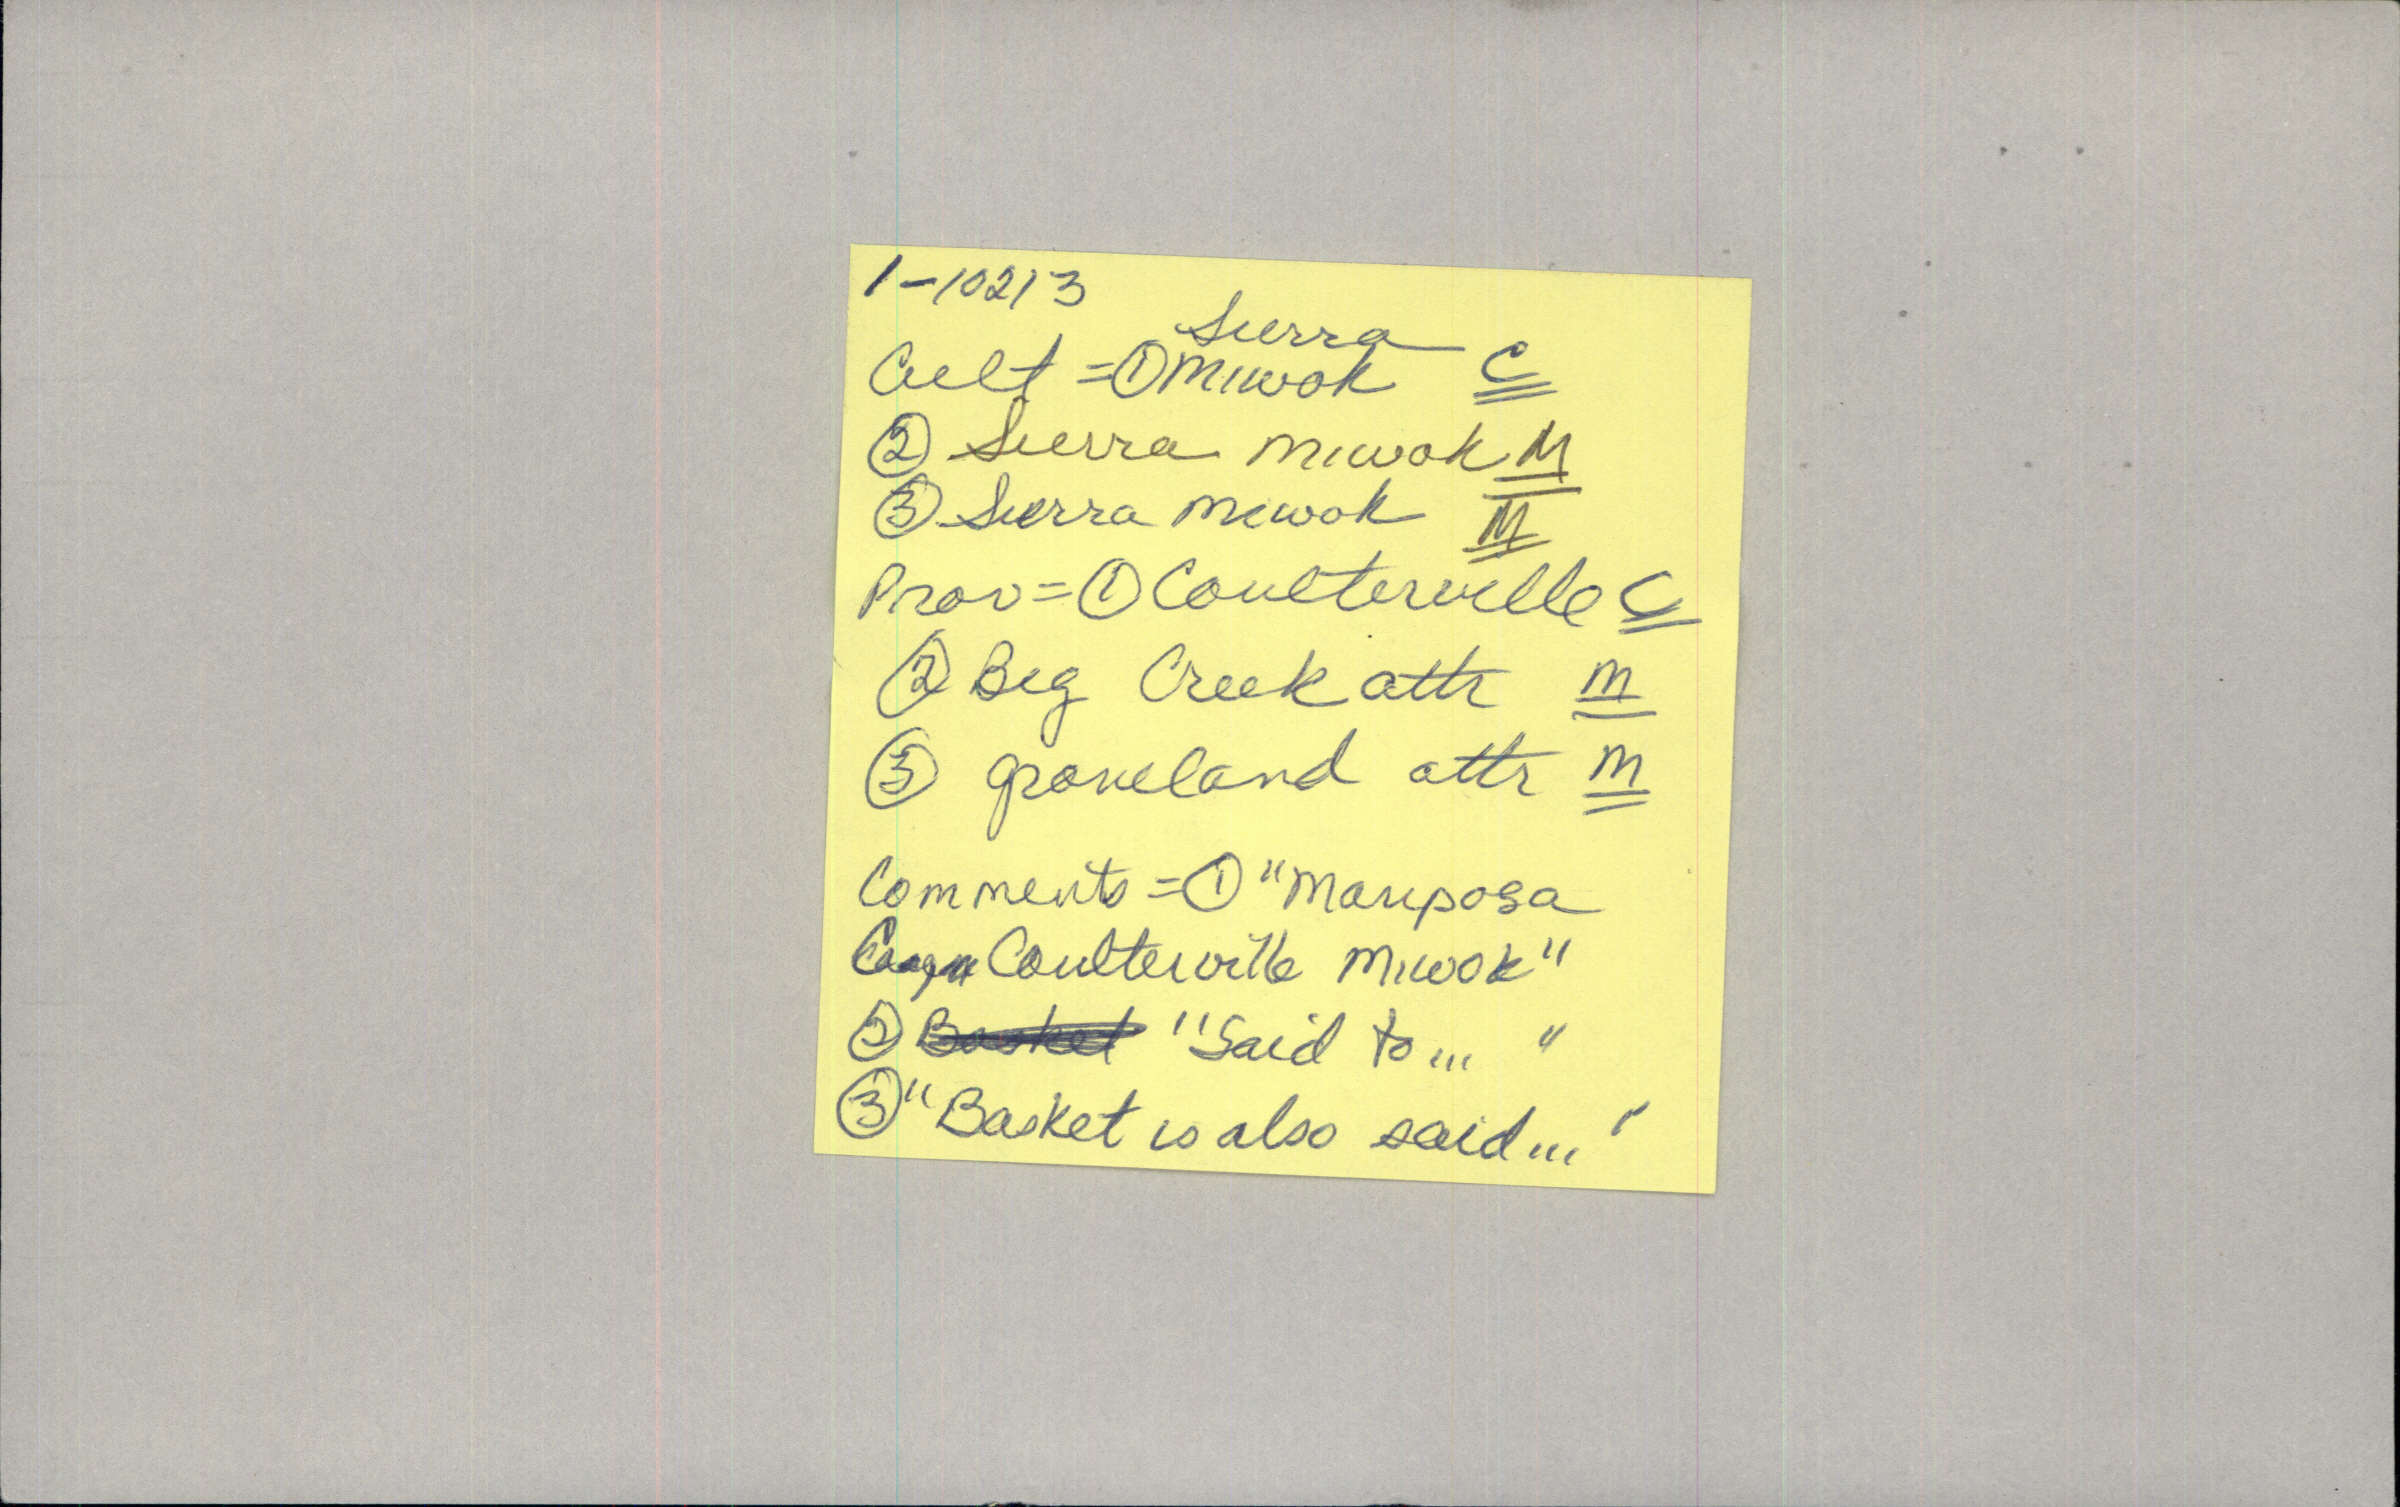 1-10213
Sierra
Cult = ① Miwok C
② Sierra Miwok M
③ Sierra Miwok M
Prov = ① Coulterville C
② Big Creek attr M
③ Groveland attr M
Comments = ① "Mariposa
Coulterville Miwok"
② Basket "Said to... "
③ "Basket is also said... "